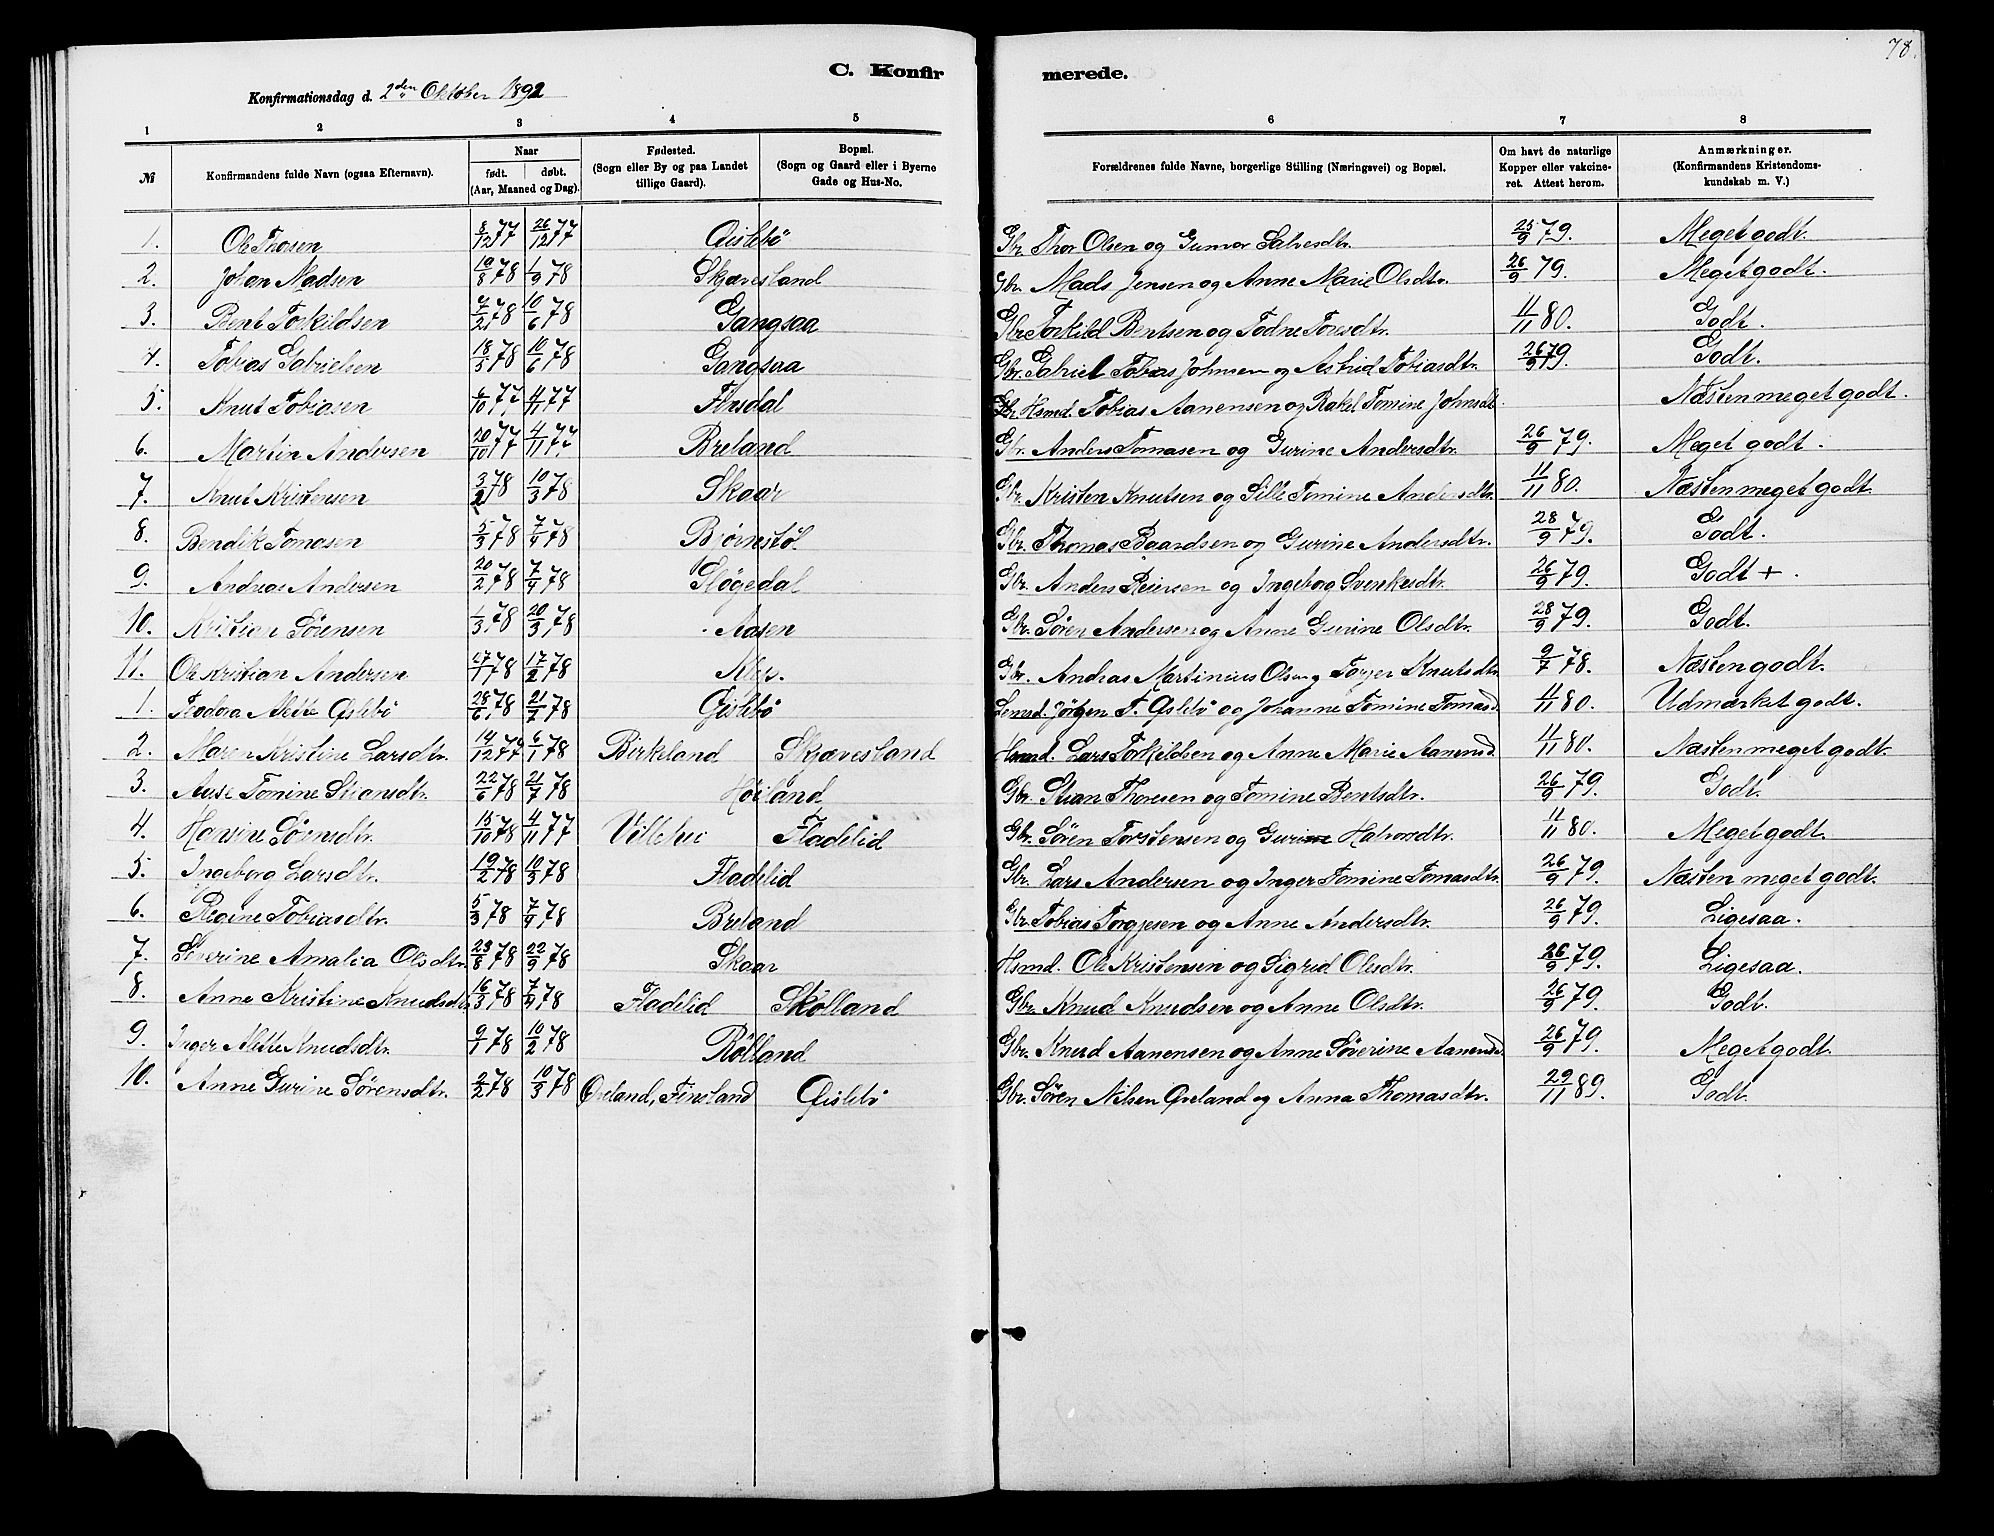 78.
C. Konfirmerede.
Konfirmationsdag d. 2den Oktober 1892
1 2 3 4 5 6 7 8
№ Konfirmandens fulde Navn (ogsaa Efternavn). Naar født. døbt. (Aar, Maaned og Dag). Fødested. (Sogn eller By og paa Landet tillige Gaard). Bopæl. (Sogn og Gaard eller i Byerne Gade og Hus-No. Forældrenes fulde Navne, borgerlige Stilling (Næringsvei) og Bopæl. Om havt de naturlige Kopper eller vakcineret. Attest herom. Anmærkninger. (Konfirmandens Kristendomskundskab m. V.)
1. Ole Thorsen 8/12 77 26/12 77 Øislebö Gbr. Thor Olsen og Gunvor Salvesdtr. 25/9 79. Meget godt.
2. Johan Madsen 10/8 78 1/9 78 Skjævesland Gbr. Mads Jensen og Anne Marie Olsdtr. 26/9 79. Meget godt.
3. Bent Torkildsen 78 10/6 78 Gangsaa Gbr Torkild Bentsen og Todne Toresdtr. 11/11 80. Godt.
4. Tobias Gabrielsen 18/5 78 10/6 78 Gangsaa Gbr. Gabriel Tobias Johnsen og Astrid Tobiasdtr. 26/9 79. Godt.
5. Knut Tobiasen 6/10 77 4/11 77 Finsdal Hsmd. Tobias Aanensen og Rakel Tomine Johnsdt. Næsten meget godt.
6. Martin Andersen 20/10 77 4/11 77 Breland Gbr. Anders Tomasen og Gurine Andersdtr. 26/9 79. Meget godt.
7. Knut Kristensen 3/2 78 10/3 78 Skaar Gbr. Kristen Knutsen og Sille Tomine Andersdtr. 11/11 80. Næsten meget godt.
8. Bendik Tomasen 5/3 78 7/4 78 Bjørnstöl Gbr. Thomas Baardsen og Gurine Andersdtr. 28/9 79. Godt.
9. Andreas Andersen 20/2 78 7/4 78 Sløgedal Gbr. Anders Reiersen og Ingeborg Svenkesdtr. 26/9 79. Godt +.
10. Kristian Sörensen 1/3 78 20/3 78 Aasen Gbr. Sören Andersen og Anne Gurine Olsdtr. 28/9 79. Godt.
11. Ole Kristian Andersen 17/1 78 17/2 78 Klep. Gbr. Andreas Martinius Olsen og Torjer Knutsdtr. 9/7 78. Næsten godt.
1. Teodora Alette Øislebö 28/6 78 21/7 78 Øislebö Lensd. Jörgen T. Øislebö og Johanne Tomine Tomasd. 11/11 80. Udmærket godt.
2. Maren Kristine Larsdtr. 14/12 77 6/1 78 Birkeland Skjævesland Hsmd. Lars Torkildsen og Anne Marie Aanensd. 11/11 80. Næsten meget godt.
3. Aase Tomine Stiansdtr. 22/6 78 21/7 78 Høiland Gbr. Stian Thoresen og Tomine Bentsdtr. 26/9 79. Godt.
4. Hansine Sörensdtr. 15/10 78 4/11 77 Fladelid Gbr. Sören Torstensen og Guri Halvorsdtr. 11/11 80. Meget godt.
5. Ingeborg Larsdtr. 19/2 78 10/3 78 Fladelid Gbr. Lars Andersen og Inger Tomine Tomasdtr. 26/9 79. Næsten meget godt.
6. Regine Tobiasdtr. 5/3 78 7/4 78 Breland Gbr. Tobias Torgjesen og Anne Andersdtr. 26/9 79. Ligesaa.
7. Severine Amalia Olsdtr. 23/8 78 22/9 78 Skaar Hsmd. Ole Kristensen og Sigrid Olesdtr. 26/9 79. Ligesaa.
8. Anne Kristine Knudsdtr. 16/3 78 7/4 78 Fladelid Skölland Gbr. Knud Knudsen og Anne Olsdtr. 26/9 79. Godt.
9. Inger Alette Knudsdtr. 9/1 78 10/2 78 Rölland Gbr. Knud Aanensen og Anne Söverine Aanensd. 26/9 79. Meget godt.
10. Anne Gurine Sörensdtr. 2/2 78 10/3 78 Øreland, Finsland Øislebö Gbr. Sören Nilsen Øreland og Anna Thomasdtr. 29/11 89. Godt.